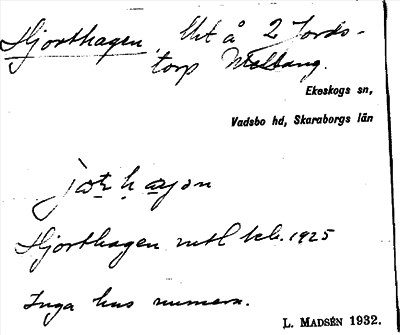 Hjorthagen, Ut å 2 Jords-
torp Mellang.
Ekeskogs sn,
Vadsbo hd, Skaraborgs län
Hjorthagen mtl 1925
Inga hus numera.
L. MADSÉN 1932.